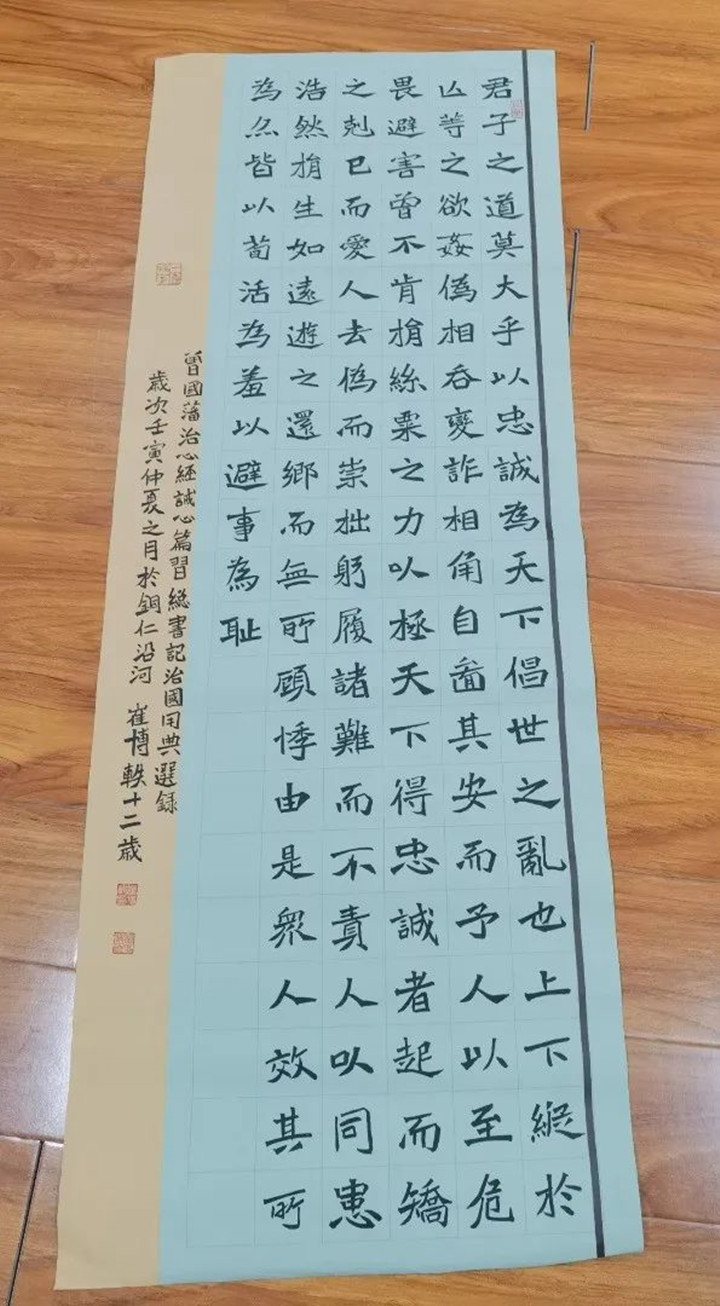 君子之道莫大乎以忠誠為天下倡世之亂也上下縱於
亡等之欲姦偽相吞變詐相角自啚其安而予人以至危
畏避害曾不肯捐絲粟之力以極天下得忠誠者起而矯
之剋己而愛人去偽而崇拙躬履諸難而不責人以同患
浩然捐生如遠遊之還鄉而無所顧悸由是衆人效其所
為亦皆以苟活為羞以避事為耻
曾國藩治心經誠心篇習總書記治國用典選録
歲次壬寅仲夏之月於銅仁沿河 崔博軼十二歲